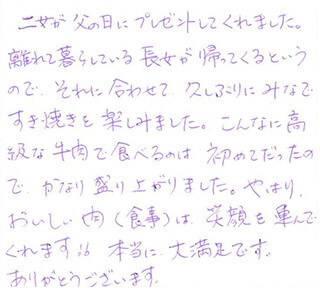 二女が父の日にプレゼントしてくれました。
離れて暮らしている長女が帰ってくるという
ので、それに合わせて、久しぶりにみなで
すき焼きを楽しみました。こんなに高
級な牛肉で食べるのは初めてだったの
で、かなり盛り上がりました。やはり、
おいしい肉(食事)は、笑顔を運んで
くれます!! 本当に、大満足です。
ありがとうございます。